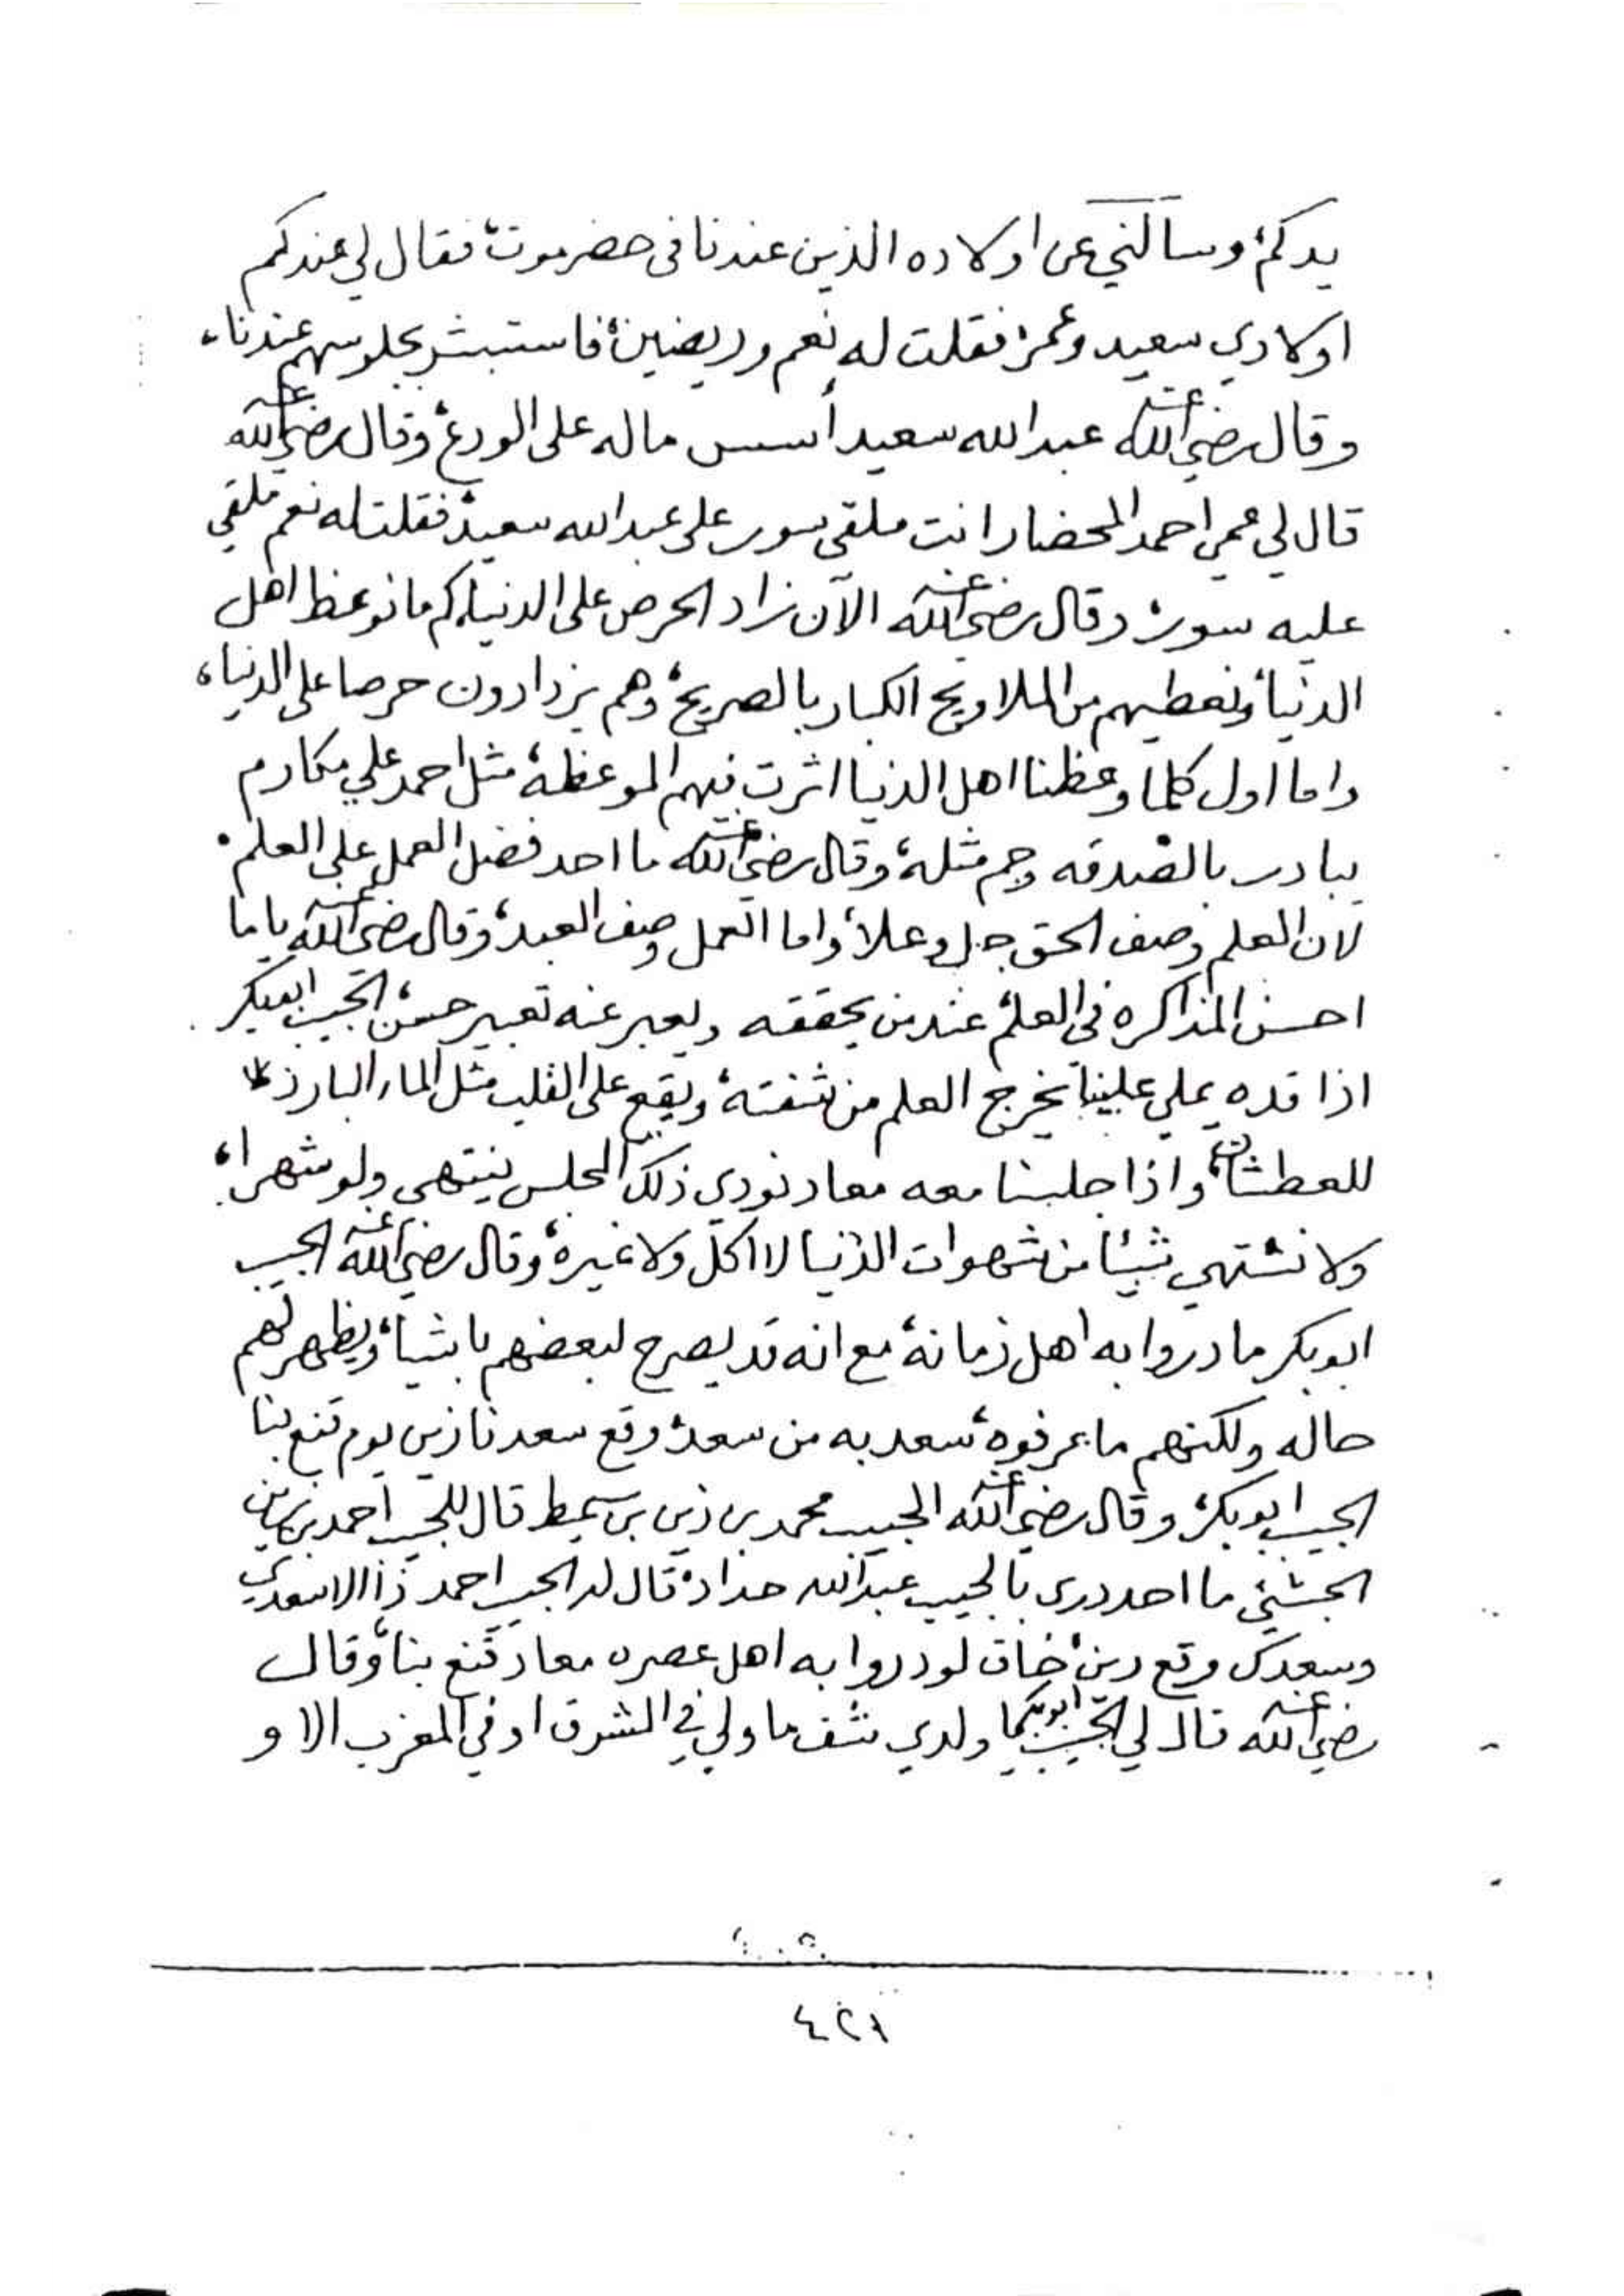 يدكم، وسالني عن اولاده الذين عندنا في حضرموت، فقال لي عندكم
اولادي سعيد وعمر، فقلت له نعم وريضين، فاستبشر بجلوسهم عندنا،
وقال رضي الله عنه عبدالله سعيد أسس ماله على الورع، وقال رضي الله عنه
قال لي عمي احمد المحضار انت ملقي سور على عبدالله سعيد، فقلت له نعم ملقي
عليه سور، وقال رضي الله عنه الآن زاد الحرص على الدنيا، كم ما نوعظ اهل
الدنيا، ونعطيهم من الملاويح الكبار بالصريح، وهم يزدادون حرصا على الدنيا،
واما اول كلما وعظنا اهل الدنيا اثرت فيهم الموعظة، مثل احمد علي مكارم
يبادر بالصدقه وجم مثله، وقال رضي الله عنه ما احد فضل العمل على العلم،
لان العلم وصف الحق جل وعلا، واما العمل وصف العبد، وقال رضي الله عنه ياما
احسن المذاكره في العلم، عند من يحققه ويعبر عنه تعبير حسن، الحبيب ابوبكر
اذا قده يملي علينا يخرج العلم من شفته، ويقع على القلب مثل الماء البارد
للعطشان، واذا جلسنا معه معاد نودي ذلك المجلس ينتهي ولو شهرا،
ولا نشتهي شيئا من شهوات الدنيا لا اكل ولا غيره، وقال رضي الله عنه الحبيب
ابوبكر ما دروا به اهل زمانه، مع انه قد يصرح لبعضهم باشيا، ويظهر لهم
حاله ولكنهم ما عرفوه، سعد به من سعد، وقع سعدنا زين يوم قنع بنا
الحبيب ابوبكر، وقال رضي الله عنه الحبيب محمد بن زين بن سميط قال للحبيب احمد بن زين
الحبشي ما احد درى بالحبيب عبدالله حداد، قال له الحبيب احمد ذا الا سعدي
وسعدك وقع زين، خاف لو دروا به اهل عصره معاد قنع بنا، وقال
رضي الله عنه قال لي الحبيب ابوبكر يا ولدي شف ما ولي في الشرق او في المغرب الا و
٤٢١